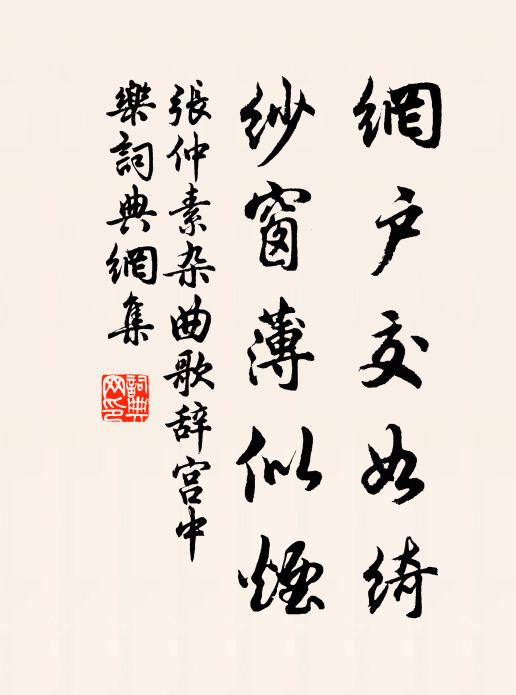 網户交如綺
紗窗薄似煙
張仲素杂曲歌辞宫中
樂詞典網集
詞典
网印